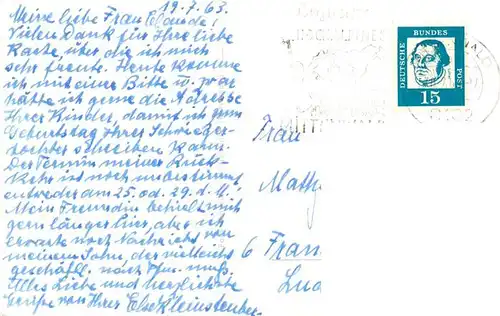 19.7.63.
Meine liebe Frau
Vielen Dank für Ihre liebe
Karte über die ich mich
sehr freute. Heute komme
ich mit einer Bitte u. zwar
hätte ich gerne die Adresse
Ihrer Kinder, damit ich zum
Geburtstag Ihrer Schwieger-
tochter schreiben kann.
Der Termin meiner Rück-
kehr ist noch unbestimmt
entweder am 25. od. 29. d. M.
Meine Freundin behielt mich
gern länger hier, aber ich
erwarte noch Nachricht von
meinem Sohn, der vielleicht
geschäftl. nach muß.
Alles Liebe und herzlichste
Grüße von Ihrer Else Kleinstenber
DEUTSCHE BUNDES POST
15
MITTENWALD
Frau
Math
6 Fran